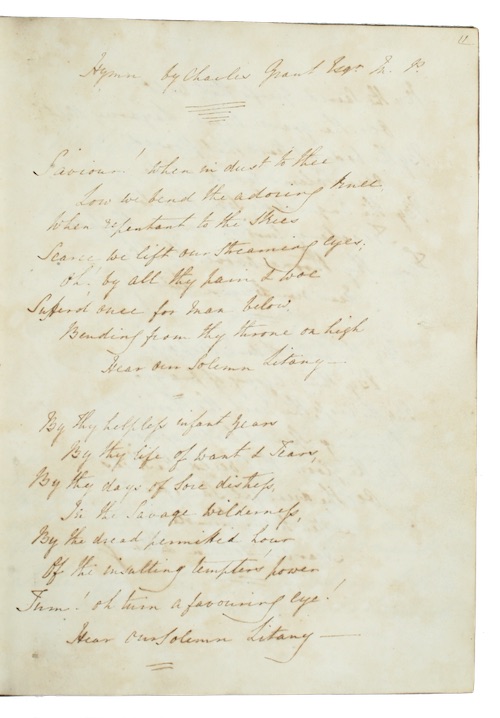 11
Hymn by Charles Grant Esqr M. P.
Saviour! when in dust to thee
Low we bend the adoring knee.
When repentant to the Skies
Scarce we lift our Streaming Eyes;
Oh! by all thy pain & woe
Sufferd once for Man below
Bending from thy throne on high
Hear our Solemn Litany—
By thy helpless infant Years
By thy life of Want & Tears,
By thy days of Sore distress,
In the Savage Wilderness,
By the dread permitted hour
Of the insulting tempters power
Turn! oh turn a favouring Eye!
Hear our Solemn Litany—